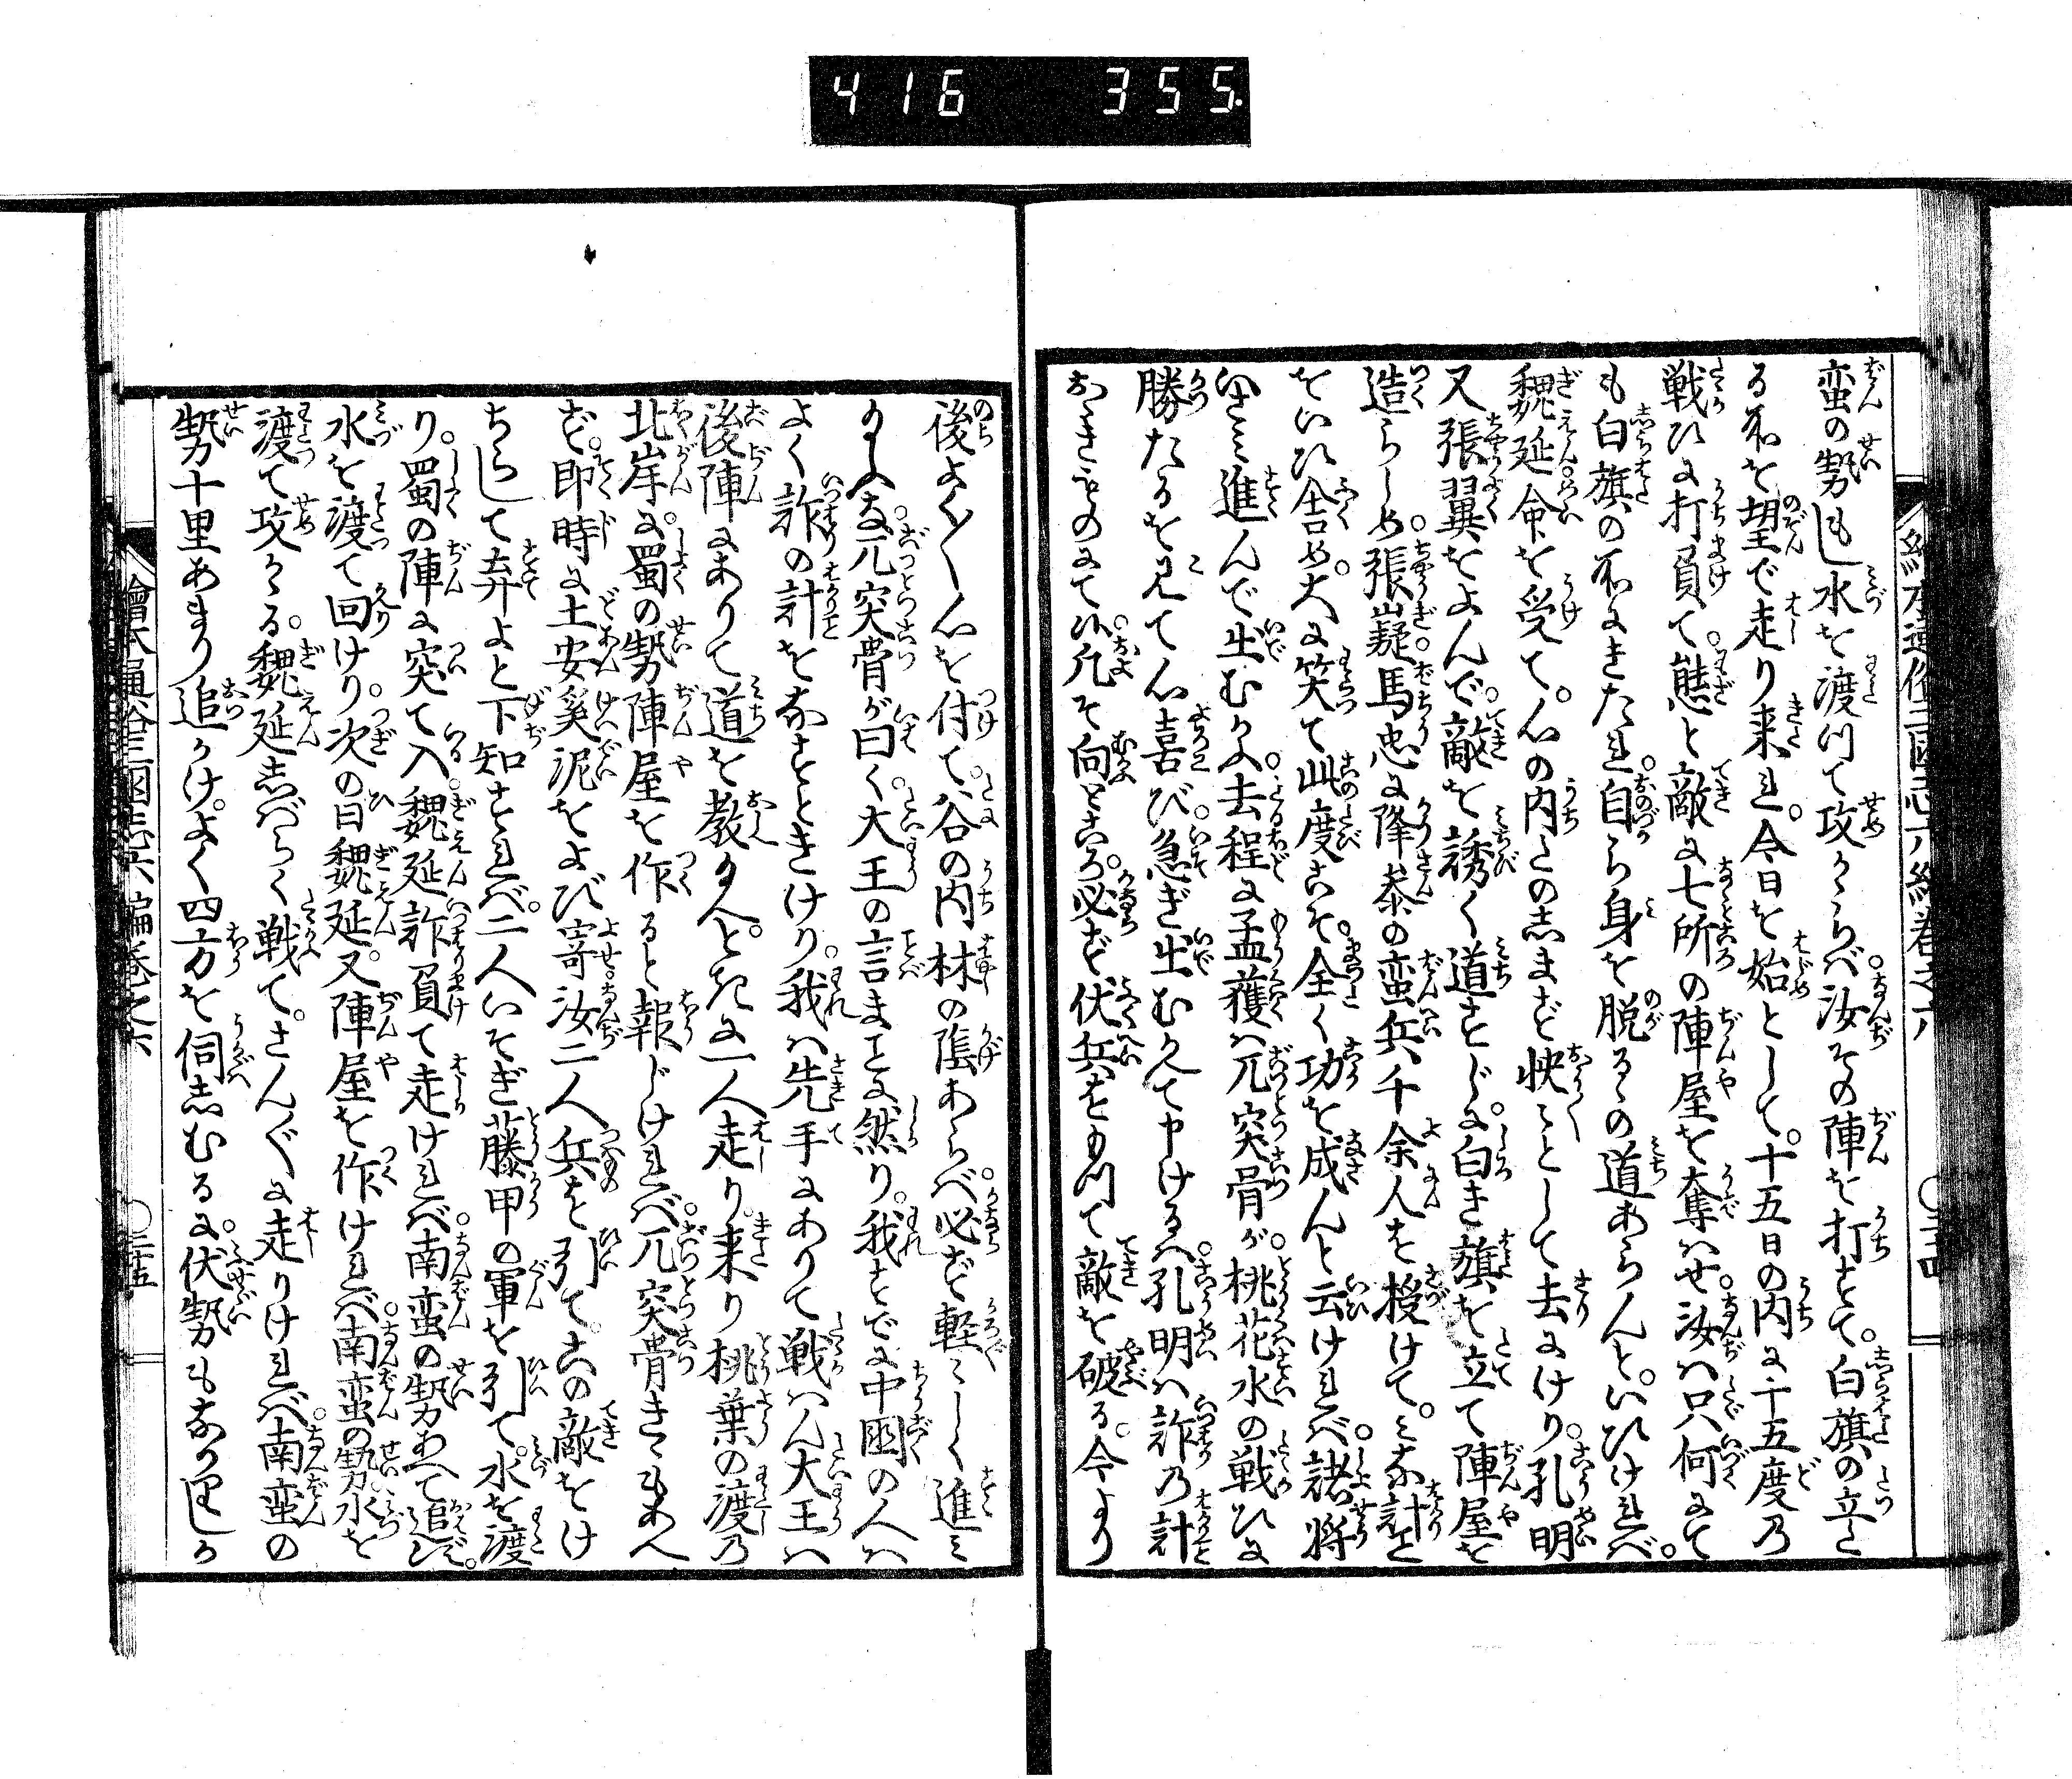 416 355.
蛮の勢もし水を渡つて攻かゝらば汝その陣を打すて。白旗の立た
る所を望で走り来れ。今日を始として。十五日の内に十五度の
戦ひに打負て。態と敵に七所の陣屋を奪はせ。汝は只何にて
も白旗の所にきたれ。自ら身を脱るゝの道あらんと。いひければ。
魏延命を受て。心の内このしまず怏々として去にけり。孔明
又張翼をよんで。敵を誘く道すじに。白き旗を立て陣屋を
造らしめ。張嶷。馬忠に降参の蛮兵千余人を授けて。みな計こと
をいひ含め。大に笑て此度こそ。全く功を成んと云ければ。諸将
いさみ進んで出むかふ。去程に孟獲は兀突骨が。桃花水の戦ひに
勝たるを見て心喜び。急ぎ出むかへて申けるは。孔明は詐の計
おほきものにて候。凡そ向ところ。必ず伏兵をもつて敵を破る。今より
後よく〱心を付て。谷の内林の陰あらば。必ず軽々しく進み
玉ふな。兀突骨が曰く。大王の言まことに然り。我すでに中国の人は
よく詐の計をなすときけり。我は先手にありて戦はん大王は
後陣にありて道を教玉へと。時に一人走り来り桃葉の渡の
北岸に。蜀の勢陣屋を作ると報じければ。兀突骨きゝもあへ
ず。即時に土安奚泥をよび寄。汝二人兵を引て。この敵をけ
ちらして弃よと下知すれば。二人いそぎ藤甲の軍を引て。水を渡
り。蜀の陣に突て入。魏延詐負て走ければ。南蛮の勢あへて追ず。
水を渡て回けり。次の日魏延。又陣屋を作ければ。南蛮の勢水を
渡て攻かゝる。魏延しばらく戦て。さん〲に走りければ。南蛮の
勢十里あまり追かけ。よく四方を伺しむるに。伏勢もなかりしか